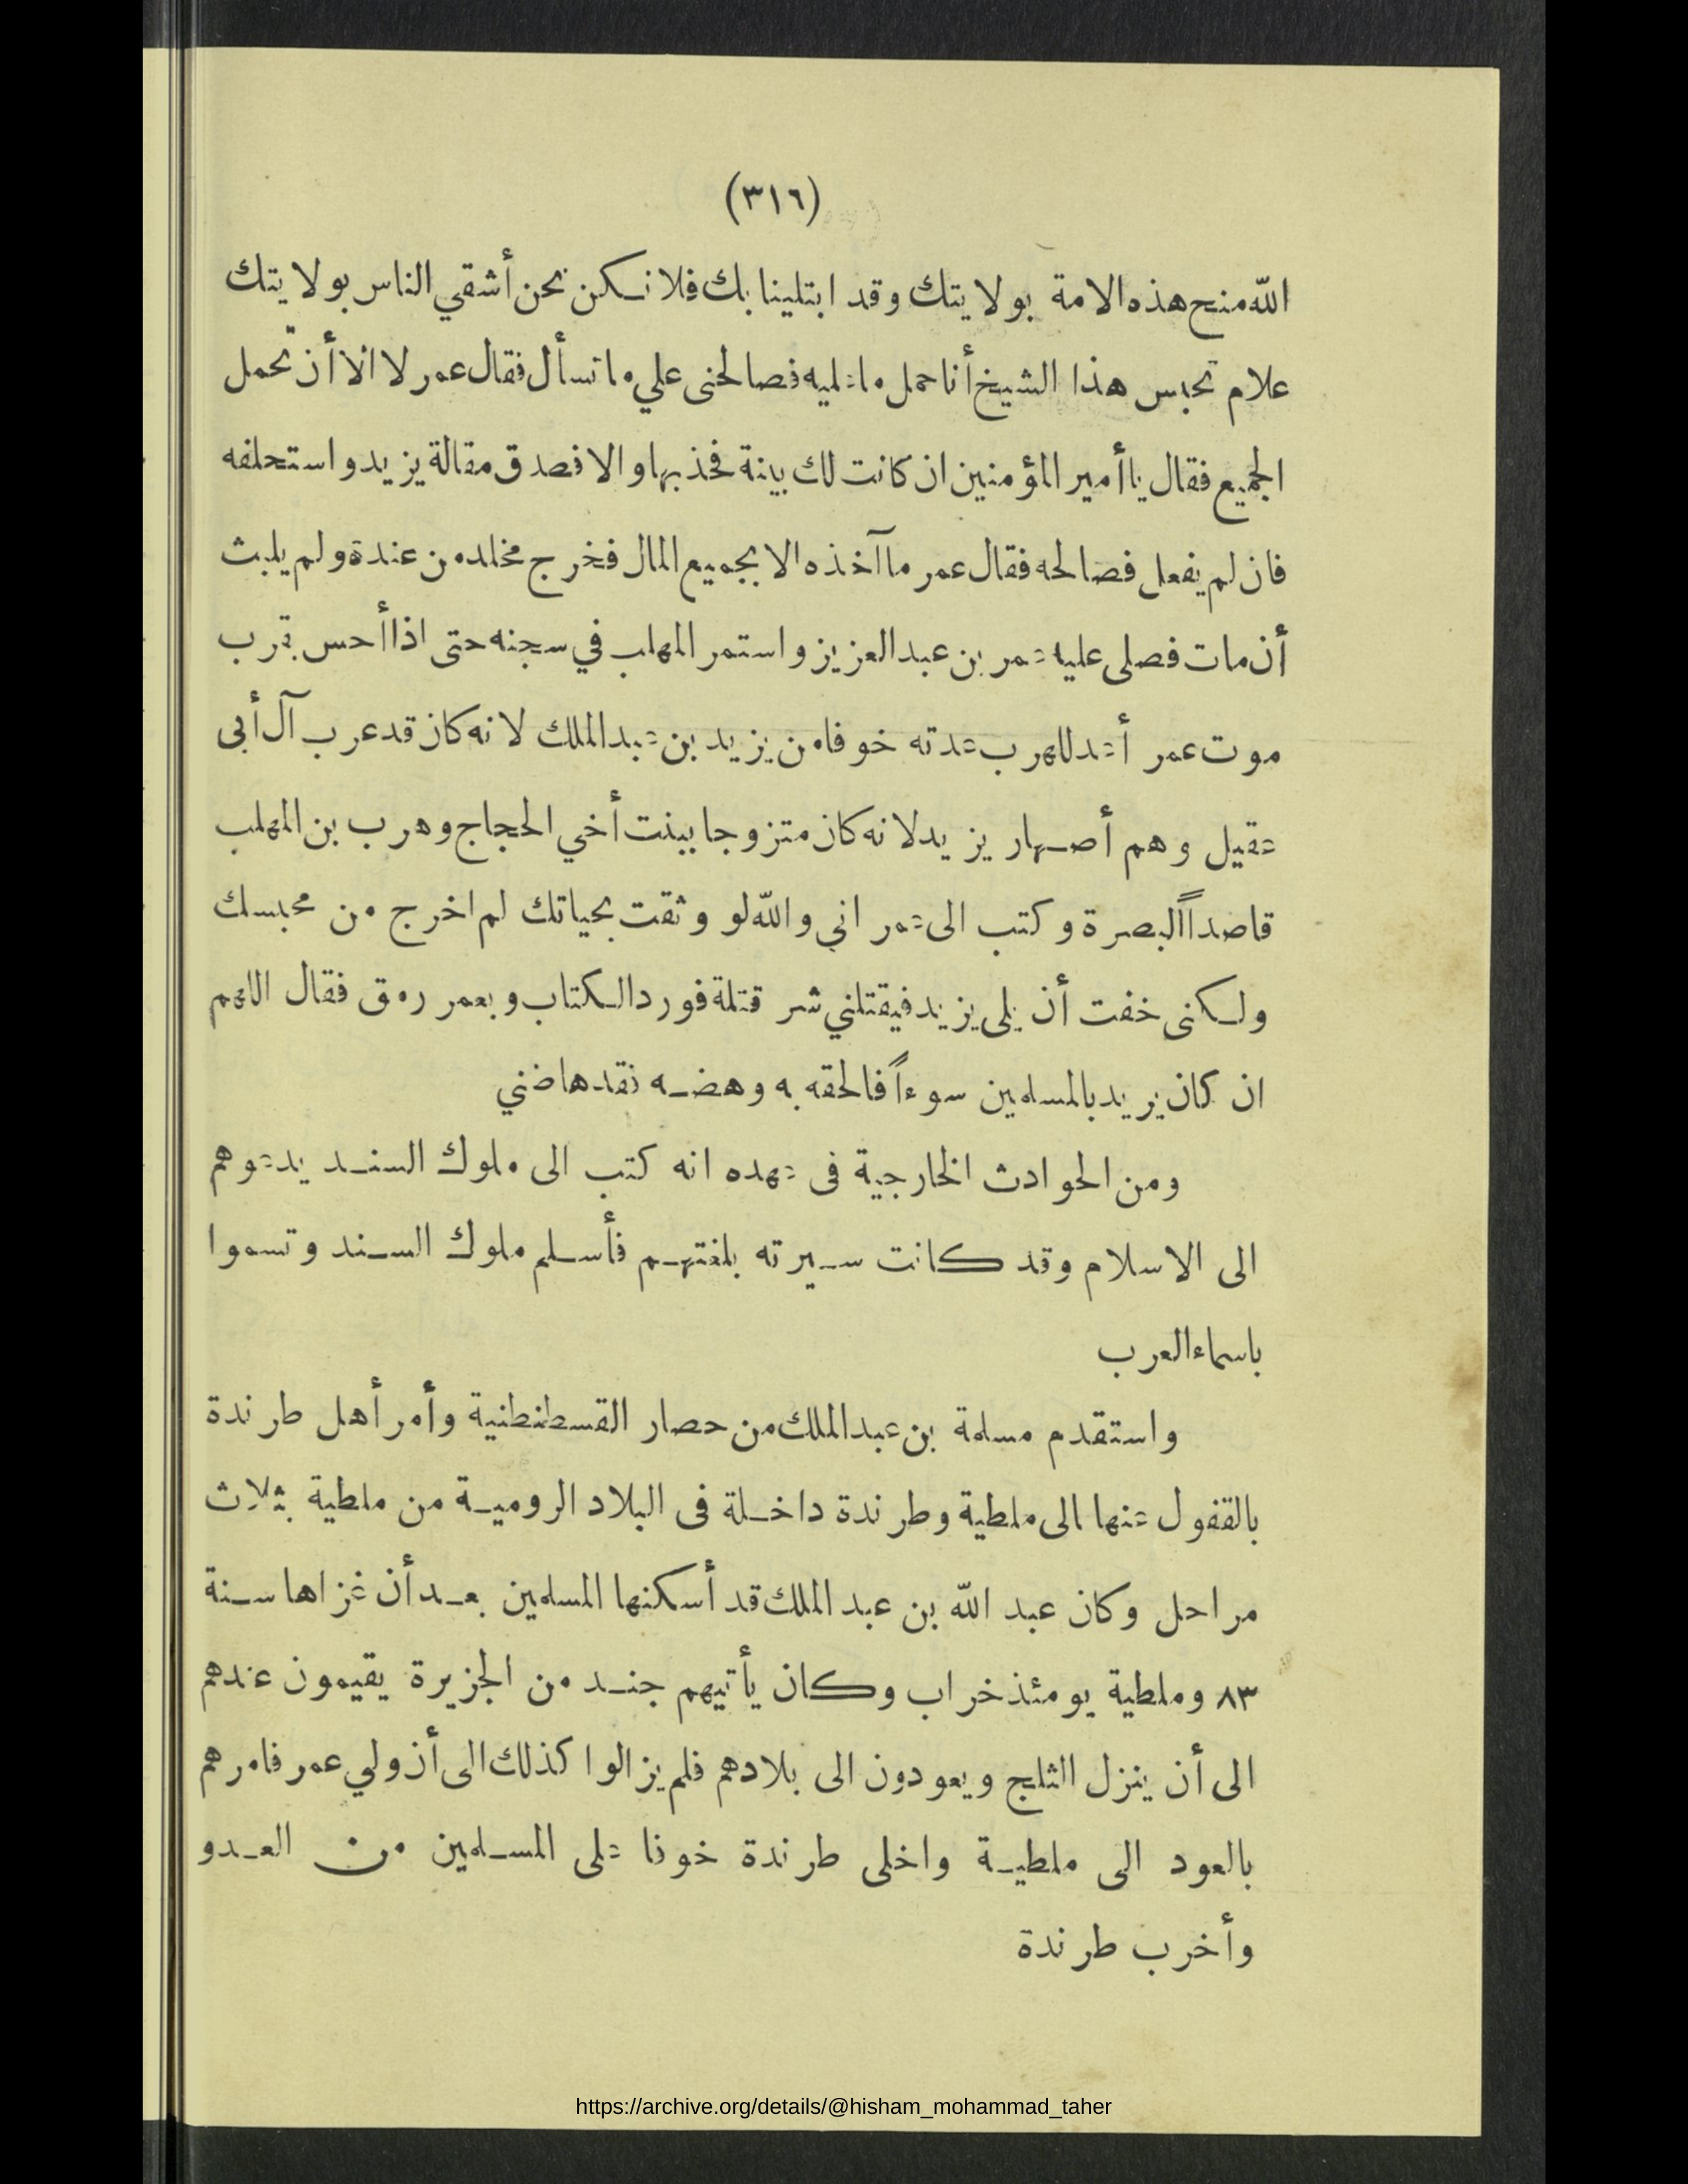 (٣١٦)
الله منح هذه الامة بولايتك وقد ابتلينا بك فلا نكن نحن أشقي الناس بولايتك
علام تحبس هذا الشيخ أنا حمل ما عليه فصالحنى علي ما تسأل فقال عمر لا الا أن تحمل
الجميع فقال يا أمير المؤمنين ان كانت لك بينة فخذ بها والا فصدق مقالة يزيد واستحلفه
فان لم يفعل فصالحه فقال عمر ما آخذه الا بجميع المال فخرج مخلد من عندة ولم يلبث
أن مات فصلى عليه عمر بن عبد العزيز واستمر المهلب في سجنه حتى اذا أحس بقرب
موت عمر أعد للهرب عدته خوفا من يزيد بن عبد الملك لانه كان قد عرب آل أبى
عقيل وهم أصهار يزيد لانه كان متزوجا ببنت أخي الحجاج وهرب بن المهلب
قاصداً البصرة وكتب الى عمر اني والله لو وثقت بحياتك لم اخرج من محبسك
ولكنى خفت أن يلى يزيد فيقتلني شر قتلة فورد الكتاب وبعمر رمق فقال اللهم
ان كان يريد بالمسلمين سوءاً فالحقه به وهضه فقد هاضني
ومن الحوادث الخارجية فى عهده انه كتب الى ملوك السند يدعوهم
الى الاسلام وقد كانت سيرته بلغتهم فأسلم ملوك السند وتسموا
باسماء العرب
واستقدم مسلمة بن عبد الملك من حصار القسطنطنية وأمر أهل طرندة
بالقفول عنها الى ملطية وطرندة داخلة فى البلاد الرومية من ملطية بثلاث
مراحل وكان عبد الله بن عبد الملك قد أسكنها المسلمين بعد أن غزاها سنة
٨٣ وملطية يومئذ خراب وكان يأتيهم جند من الجزيرة يقيمون عندهم
الى أن ينزل الثلج ويعودون الى بلادهم فلم يزالوا كذلك الى أن ولي عمر فامرهم
بالعود الى ملطية واخلى طرندة خوفا على المسلمين من العدو
وأخرب طرندة
https://archive.org/details/@hisham_mohammad_taher